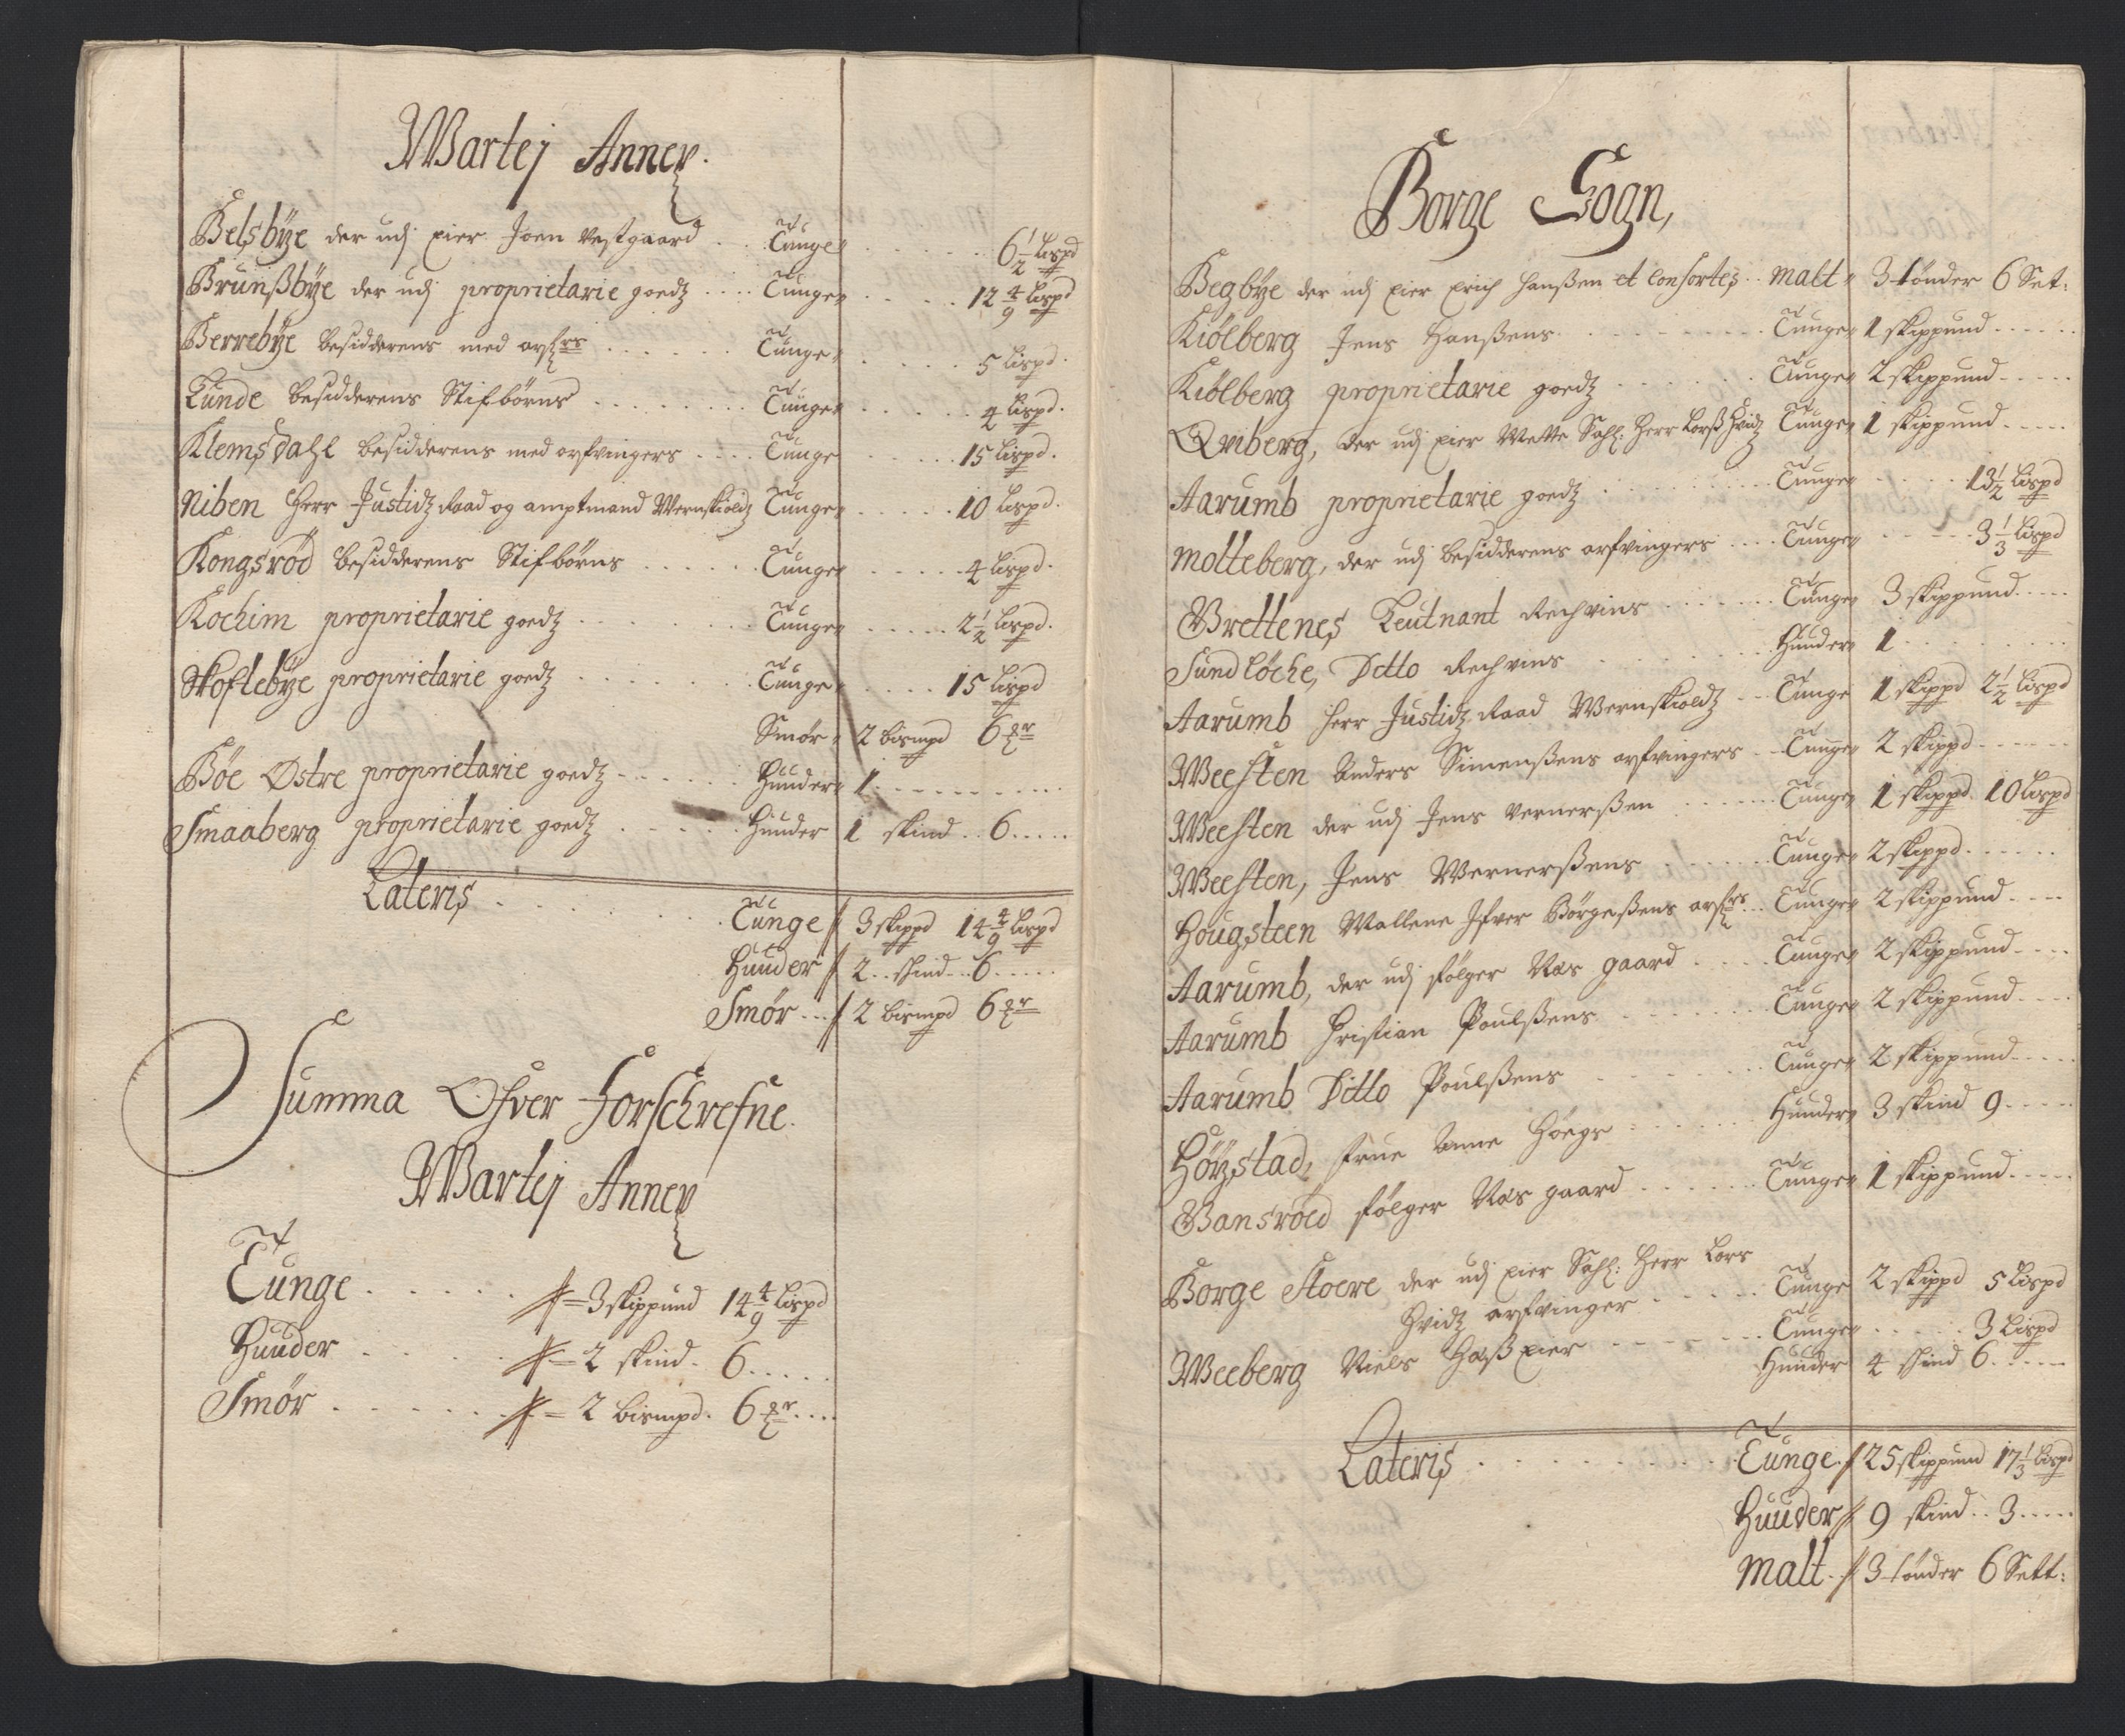 Wartej Anney.
Belsbÿe der udj eier Joen Vestgaard . . Tunge 6 1/2 Lispd
Brunsbÿe der udj proprietarie goedz . . . . Tunge 12 4/9 Lispd
Berrebÿe besidderens med arfrs . . . . . . Tunge 5 Lispd.
Lunde besidderens Stifbørns . . . . . . . . Tunge 4 Lispd.
Klemsdahl besidderens med arfvingers . . . . Tunge 15 Lispd.
Niben Herr Justidz Raad og amptmand Wernskioldz Tunge 10 Lispd.
Kongsrød besidderens Stifbørns . . . . . . Tunge 4 Lispd.
Kochim proprietarie goedz . . . . . . . . Tunge 2 1/2 Lispd.
Skoftebÿe proprietarie goedz . . . . . . . Tunge 15 Lispd
Smør 2 bismpd 6
Bøe Østre proprietarie goedz . . . . . . Huuder 1 . . . . .
Smaaberg proprietarie goedz . . . . . Huuder 1 skind . . 6 . . . . .
Lateris . . . . . . . Tunge 3 skippd 14 4/9 Lispd
Huuder 2 . . skind . . 6 . . . . .
Smør . . . 2 bismpd 6
Summa Ofver Forschrefne.
Wartej Anney
Tunge . . . . . 3 skippund 14 4/9 Lispd
Huuder . . . . . 2 skind . 6 . . . . .
Smør . . . . . . 2 bismpd. 6 . . . .
Borge Sogn,
Begbÿe der udj eier Erich Hanßen et Consortes . . malt 3 tønder 6 Set:
Kiølberg Jens Hanßens . . . . . . . . . Tunge 1 skippund . . . . . .
Kiølberg proprietarie goedz . . . . . . Tunge 2 skippund . . . . .
Qviberg, der udj eier Mette Sahl: Herr Larß Hvidz Tunge 1 skippund . . . . .
Aarumb proprietarie goedz . . . . . . . . . Tunge 13 1/2 Lispd
Molteberg, der udj besidderens arfvingers . . . . Tunge 3 1/3 Lispd
Brettenes Leutnant Rechvins . . . . . . . Tunge 3 skippund . . . . .
Sundløche, Ditto Rechvins . . . . . . . . Huuder 1 . . . . .
Aarumb Herr Justidz Raad Wernskioldz . . . Tunge 1 skippd 2 1/2 Lispd
Weesten Anders Simenßens arfvingers . . Tunge 2 skippd . . . . . .
Weesten der udj Jens Vernerßen . . . . . . . Tunge 1 skippd 10 Lispd
Weesten, Jens Wernerßens . . . . . . . . Tunge 2 skippd . . . . . .
Hougsteen Mallene Ifver Børgeßens arfrs . . Tunge 2 skippund . . . .
Aarumb, der udj følger Næs gaard . . . . Tunge 2 skippund . . . .
Aarumb Christian Poulßens . . . . . . . Tunge 2 skippund . . . .
Aarumb Ditto Poulßens . . . . . . . . Tunge 2 skippund . . . . .
Huuder 3 skind 9 . . . . .
Høyzstad, Frue Anne Høegs . . . . . .
Bansrøed følger Næs gaard . . . . . . Tunge 1 skippund . . . . .
Borge Stoere der udj eier Sahl: Herr Lars
Hvidz arfvinger . . . . . Tunge 2 skippd 5 Lispd
Weeberg Niels Haß eier . . . . . . . . Tunge 3 Lispd
Huuder 4 skind 6 . . . . .
Lateris . . . . . . . . . . Tunge. 25 skippund 17 1/3 Lispd
Huuder 9 skind . . 3 . . . . .
Malt. 3 tønder 6 Sett: